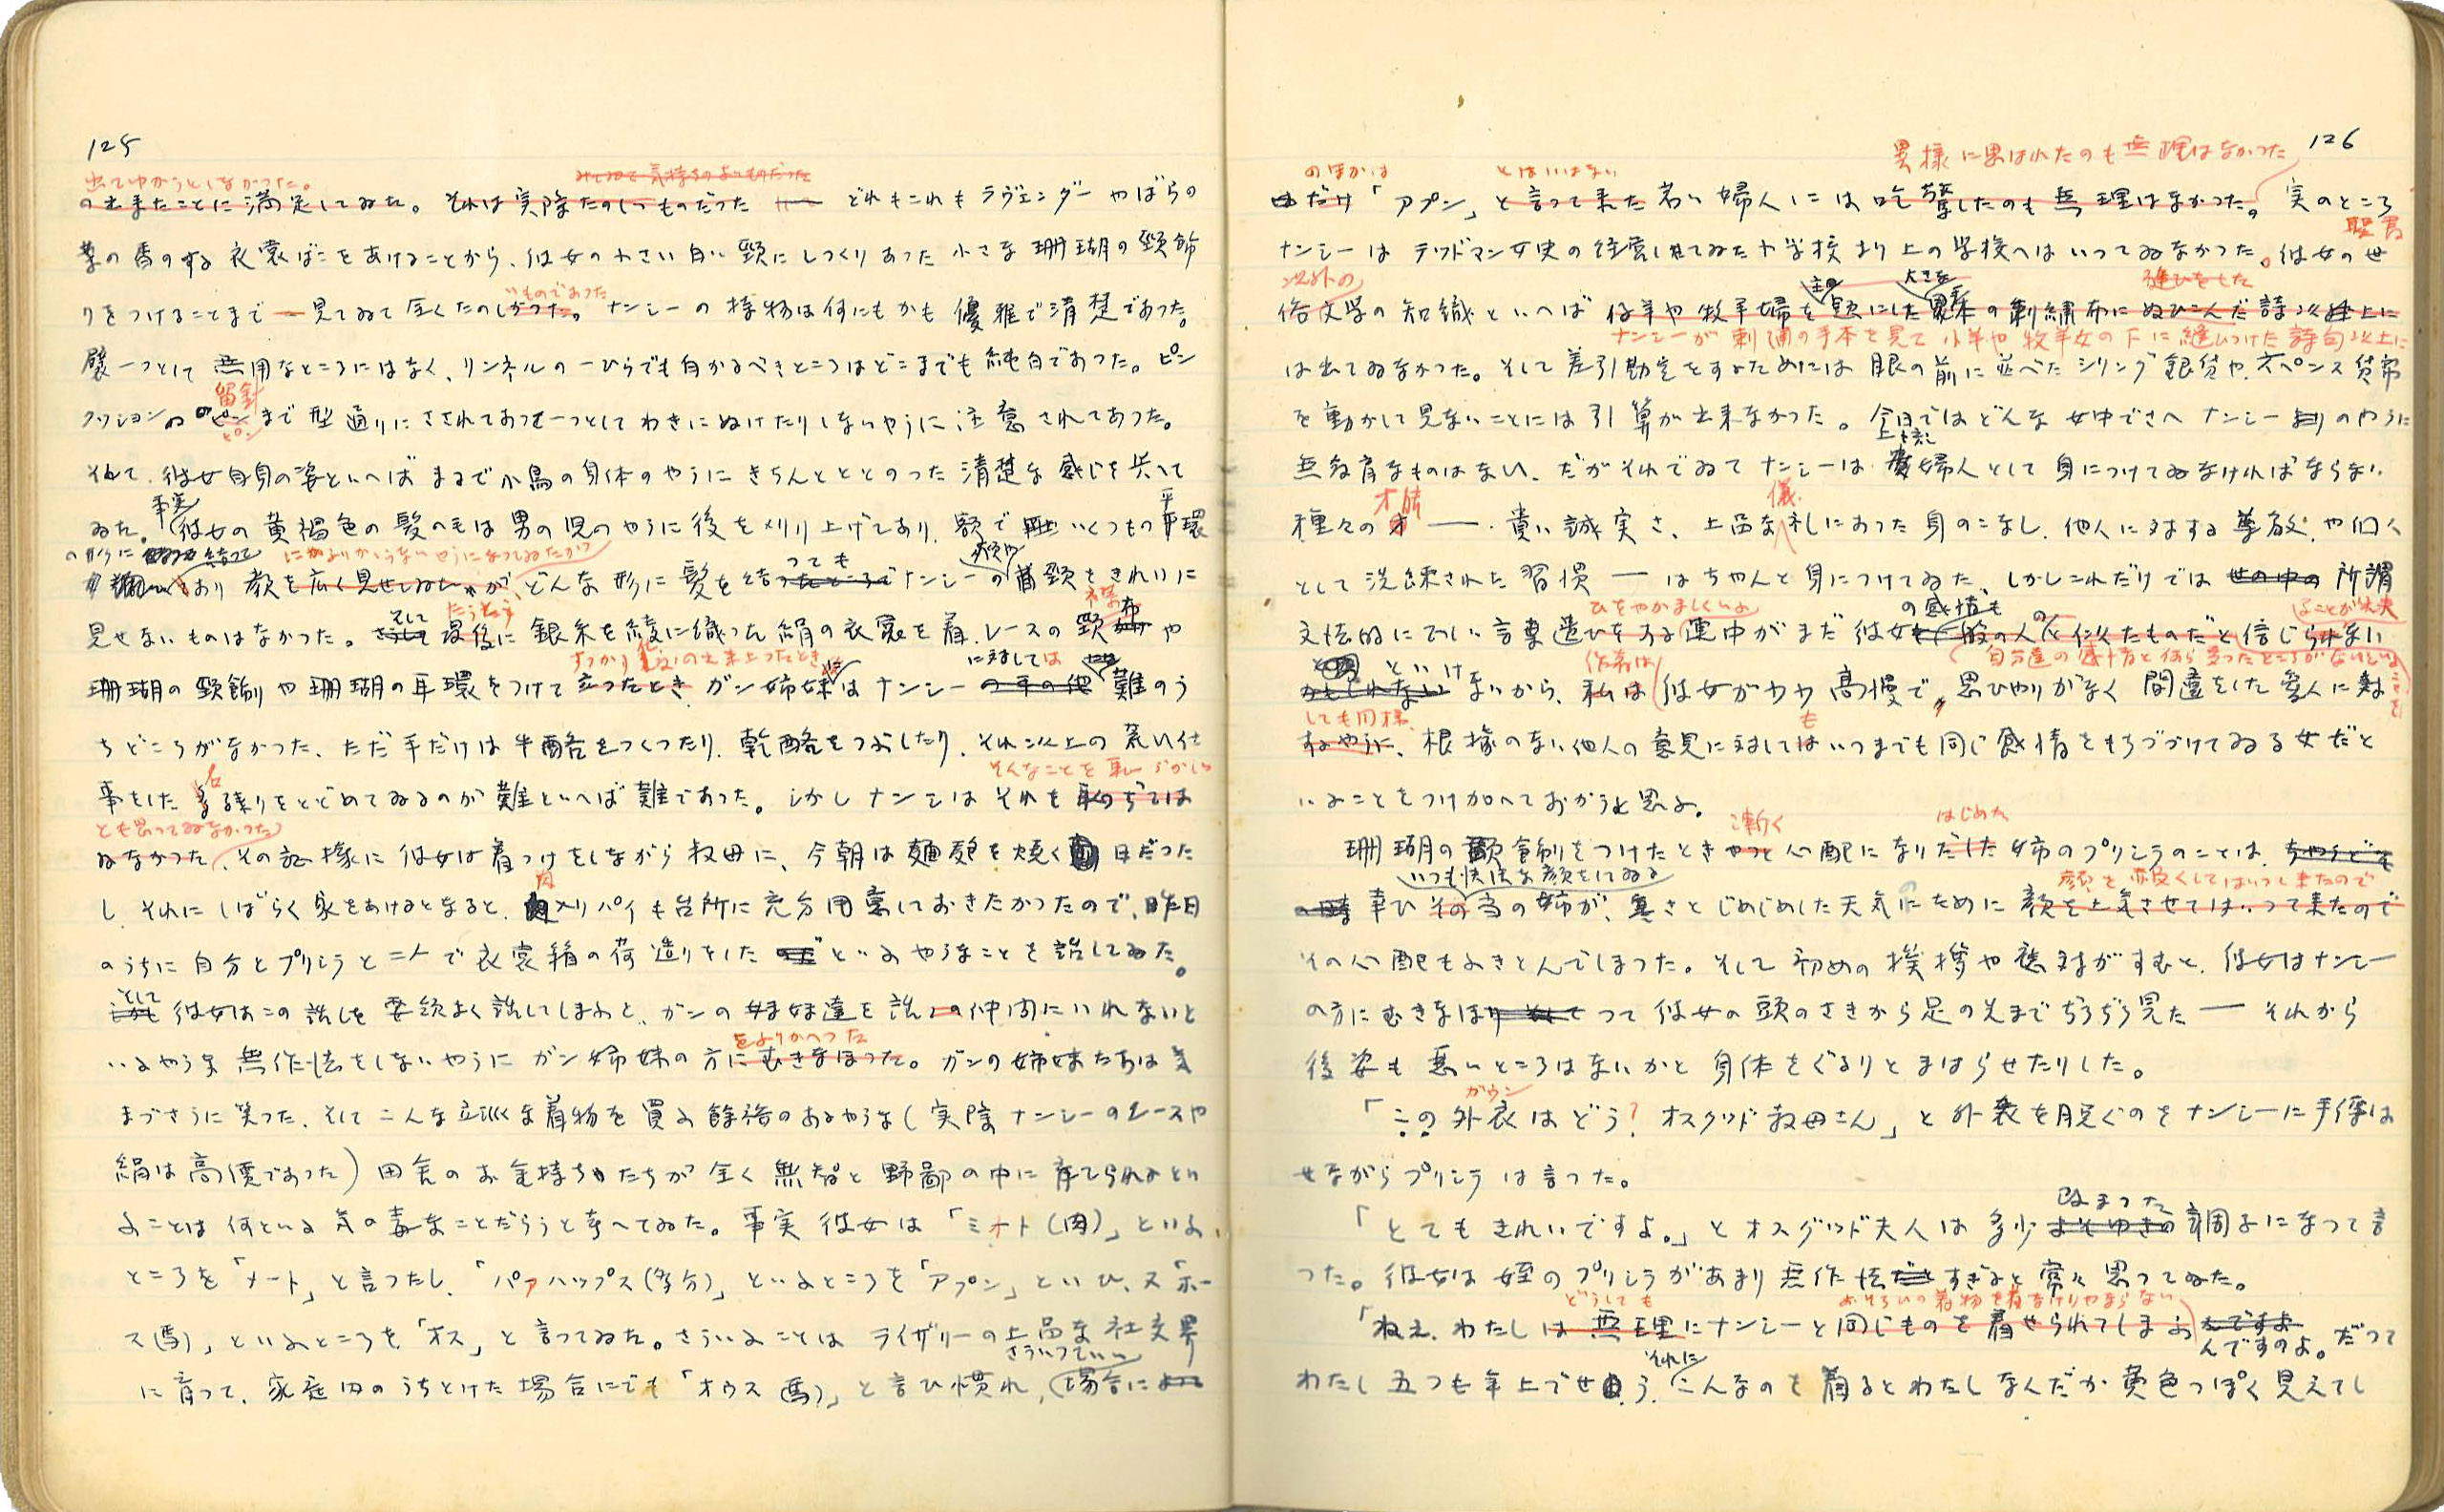 125
出てゆかうとしなかつた。
の出来たことに満足してゐた。それは実際たのしいものだつた どれもこれもラヴェンダーやばらの
葉の香のする衣裳ばこをあけることから、彼女の小さい白い頸にしつくりあつた小さな珊瑚の頸飾
いものであつた
りをつけることまで一見てゐて全くたのしかつた。ナンシーの持物は何にもかも優雅で清楚であつた。
襞一つとして無用なところにはなく、リンネルの一ひらでも白かるべきところはどこまでも純白であつた。ピン
留針
クッションの のピンまで型通りにさされておつて一つとしてわきにぬけたりしないやうに注意されてあつた。
ピン
そして、彼女自身の姿といへばまるで小鳥の身体のやうにきちんとととのつた清楚な感じを与へて
事実
ゐた。彼女の黄褐色の髪の毛は男の児のやうに後を刈り上げてあり、額で いくつもの平環
の形に 結つて にかよりかうないやうになつてゐたが
あり 顔を広く見せてゐたが、どんな形に髪を結つても ナンシーの 頬や 首頸をきれいに
見せないものはなかつた。そして たうとう 最後に銀糸を綾に織つた絹の衣裳を着、レースの 襟布 や
すつかり 支度の出来上つたとき に対しては
珊瑚の頸飾や珊瑚の耳環をつけて立つたとき、ガン姉妹にはナンシー の手の他 難のう
ちどころがなかつた、ただ手だけは牛酪をつくつたり、乾酪をつぶしたり、それ以上の荒い仕
そんなことを恥づかしい
事をした名残りをとどめてゐるのが難といへば難であつた。しかしナンシはそれを恥ぢては
とも思つてゐなかつた
ゐなかつた、その証拠に彼女は着つけをしながら叔母に、今朝は麺麭を焼く日だつた
し、それにしばらく家をあけるとなると、肉入りパイも台所に充分用意しておきたかつたので、昨日
のうちに自分とプリシラと二人で衣裳箱の荷造りをした といふやうなことを話してゐた。
そして彼女はこの話しを要領よく話してしまふと、ガンの姉妹達を話の仲間にいれないと
をふりかへつた
いふやうな無作法をしないやうにガン姉妹の方にむきなほつた。ガンの姉妹たちは気
まづさうに笑つた、そしてこんな立派な着物を買ふ餘裕のあるやうな(実際ナンシーのレースや
絹は高價であつた)田舎のお金持ちたちが全く無智と野鄙の中に育てられるとい
ふことは何といふ気の毒なことだらうと考へてゐた。事実彼女は「ミート(肉)」といふ
ところを「メート」と言つたし、「パァハップス(多分)」といふところを「アプン」といひ、又「ホー
ス(馬)」といふところを「オス」と言つてゐた。さういふことはライザリーの上品な社交界
さういつていい
に育つて、家庭内のうちとけた場合にでも「オウス(馬)」と言ひ慣れ、場合に
126
のほかは とはいはない 異様に思はれたのも無理はなかつた
だけ「アプン」と言つて来た若い婦人には吃驚したのも無理はなかつた。実のところ
ナンシーはテッドマン女史の経営してゐた小学校より上の学校へはいつてゐなかつた。彼女の
以外の 大きな 縫ひをした
俗文学の知識といへば仔羊や牧羊婦を題にした の刺繍布にぬひこんだ詩以上に
ナンシーが刺繍の手本を見て小羊や牧羊女の下に縫ひつけた詩句以上に
は出てゐなかつた。そして差引勘定をするためには眼の前に並べたシリング銀貨や六ペンス貨幣
を動かして見ないことには引算が出来なかつた。今日ではどんな女中でさへナンシーのやうに
無教育なものはない、だがそれでゐてナンシーは 上流 婦人として身につけてゐなければならない
種々の才能――貴い誠実さ、上品な礼儀にあつた身のこなし、他人に対する尊敬や個人
として洗練された習慣――はちやんと身につけてゐた、しかしこれだけでは世の中の所謂
ひをやかましくいふ の感情も ることが出来
文法的に正しい言葉遣ひをする連中がまだ彼女 の人のに似たものだと信じられない
自分達の感情と何ら違つたところがないといふことを
といけないから、作者は 私は 彼女がやや高慢で、思ひやりがなく間違をした愛人に対
しても同様
するやうに、根據のない他人の意見に対してもいつまでも同じ感情をもちつづけてゐる女だと
いふことをつけ加へておかうと思ふ。
漸く はじめた
珊瑚の頸飾をつけたときやつと心配になりだした姉のプリシラのことは、ちやうど
いつも快活な顔をしてゐる 顔を赤くしてはいつて来たので
幸ひ その当の姉が、寒さとじめじめした天気のために顔を上気させてはいつて来たので
その心配もふきとんでしまつた。そして初めの挨拶や応対がすむと、彼女はナンシー
の方にむきなほ つて彼女の頭のさきから足の先までぢろぢろ見た――それから
後姿も悪いところはないかと身体をぐるりとまはらせたりした。
ガウン
「この外衣はどう?オスグッド叔母さん」と外衣を脱ぐのをナンシーに手伝は
せながらプリシラは言つた。
改まつた
「とてもきれいですよ。」とオスグッド夫人は多少よそゆきの調子になつて言
つた。彼女は姪のプリシラがあまり無作法すぎると常々思つてゐた。
どうしても おそろひの着物を着なけりやならない
「ねえ、わたしは無理にナンシーと同じものを着せられてしまふ んですのよ。だつて
それに
わたし五つも年上でせう、こんなのを着るとわたしなんだか黄色つぽく見えてし